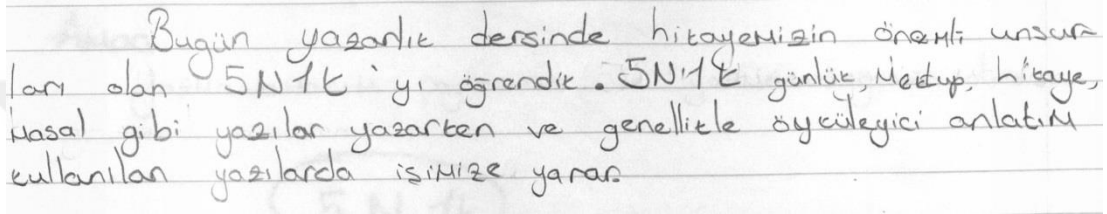 Bugün yazarlık dersinde hikayemizin önemli unsur-
ları olan 5N1K'yı öğrendik. 5N1K günlük, Mektup, hikaye,
Masal gibi yazılar yazarken ve genellikle öyküleyici anlatım
kullanılan yazılarda işimize yarar.